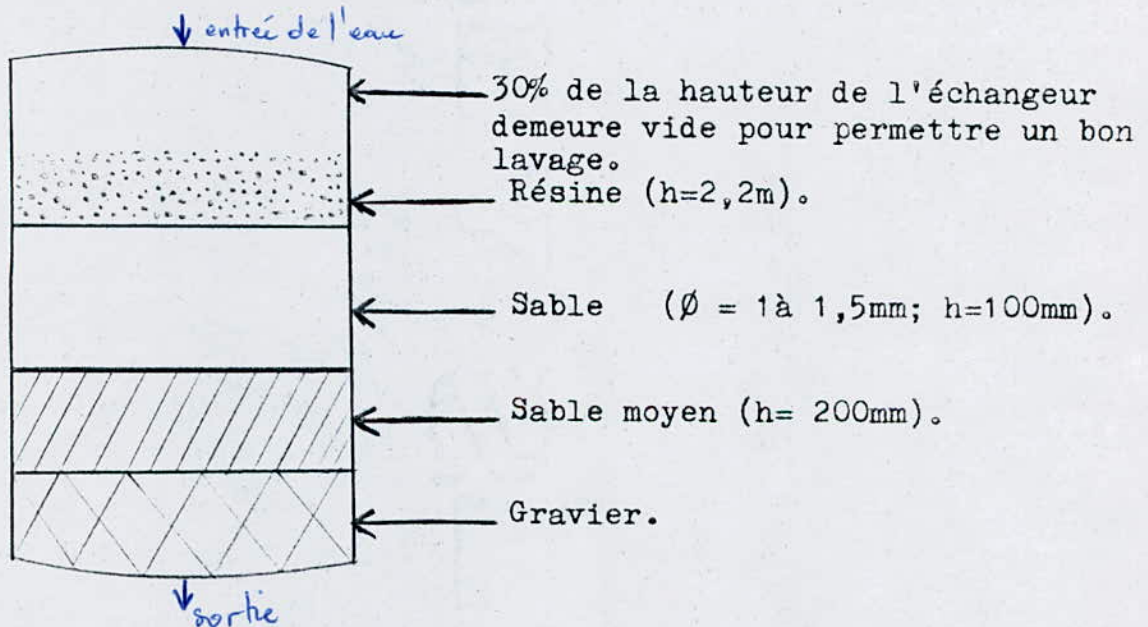 entrée de l'eau
30% de la hauteur de l'échangeur
demeure vide pour permettre un bon
lavage.
Résine (h=2,2m).
Sable (Ø = 1à 1,5mm; h=100mm).
Sable moyen (h= 200mm).
Gravier.
sortie